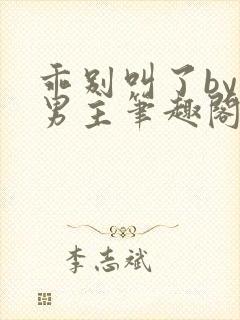 乖别叫了by
男主笔趣阁
李志斌